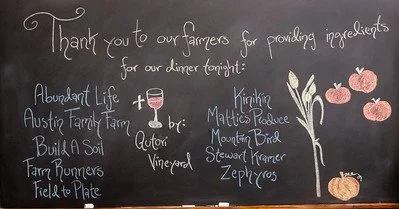 Thank you to our farmers for providing ingredients
for our dinner tonight:
Abundant Life
Austin Family Farm
Build A Soil
Farm Runners
Field to Plate
+
by:
Qutori
Vineyard
Kinikin
Mattics Produce
Mountain Bird
Stewart Kramer
Zephyros